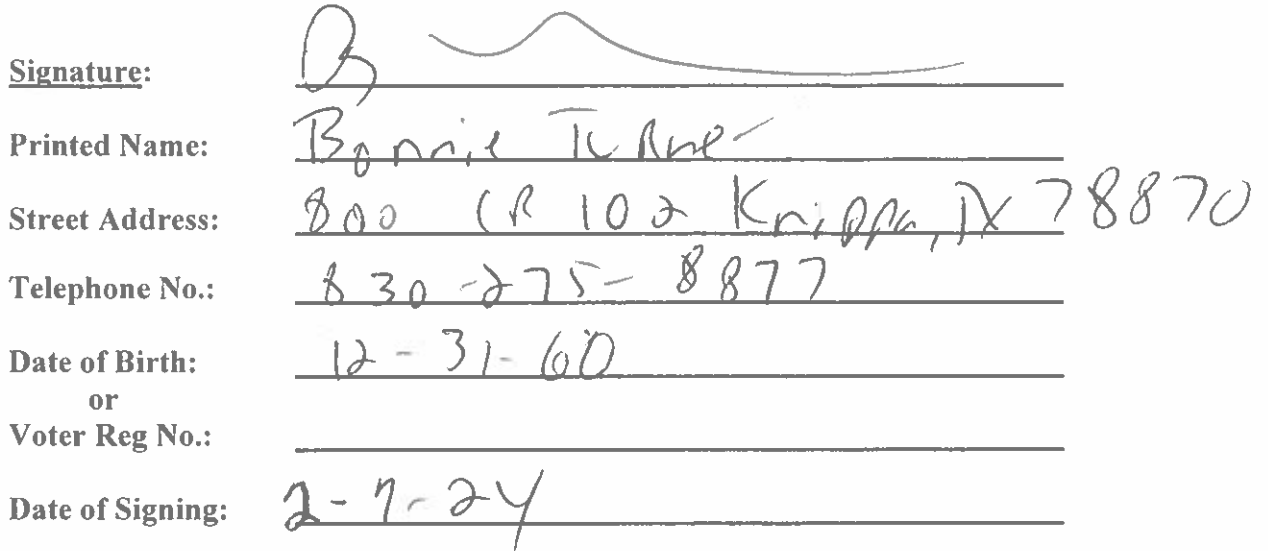 Signature: B
Printed Name: Bonnie Turner
Street Address: 800 CR 102 Knippa, TX 78870
Telephone No.: 830-275-8877
Date of Birth: 12-31-60
or
Voter Reg No.:
Date of Signing: 2-7-24